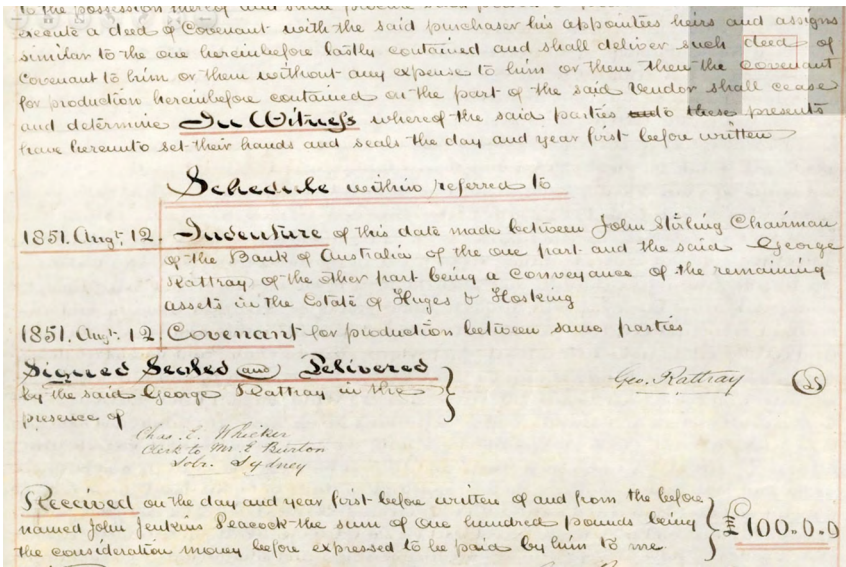 to the possession thereof and shall procure
execute a deed of Covenant with the said purchaser his appointees heirs and assigns
similar to the one hereinbefore lastly contained and shall deliver such deed of
Covenant to him or them without any expense to him or them then the covenant
for production hereinbefore contained on the part of the said Vendor shall cease
and determine In Witness whereof the said parties to these presents
have hereunto set their hands and seals the day and year first before written
Schedule within referred to
1851. Augt. 12. Indenture of this date made between John Stirling Chairman
of the Bank of Australia of the one part and the said George
Rattray of the other part being a conveyance of the remaining
assets in the Estate of Huges & Hosking
1851. Augt. 12 Covenant for production between same parties
Signed Sealed and Delivered
by the said George Rattray in the
presence of
Geo. Rattray
LS
Chas. E. Whicker
Clerk to Mr. E. Burton
Solr. Sydney
Received on the day and year first before written of and from the before
named John Jenkins Peacock the sum of One hundred pounds being
the consideration money before expressed to be paid by him to me.
£100.0.0